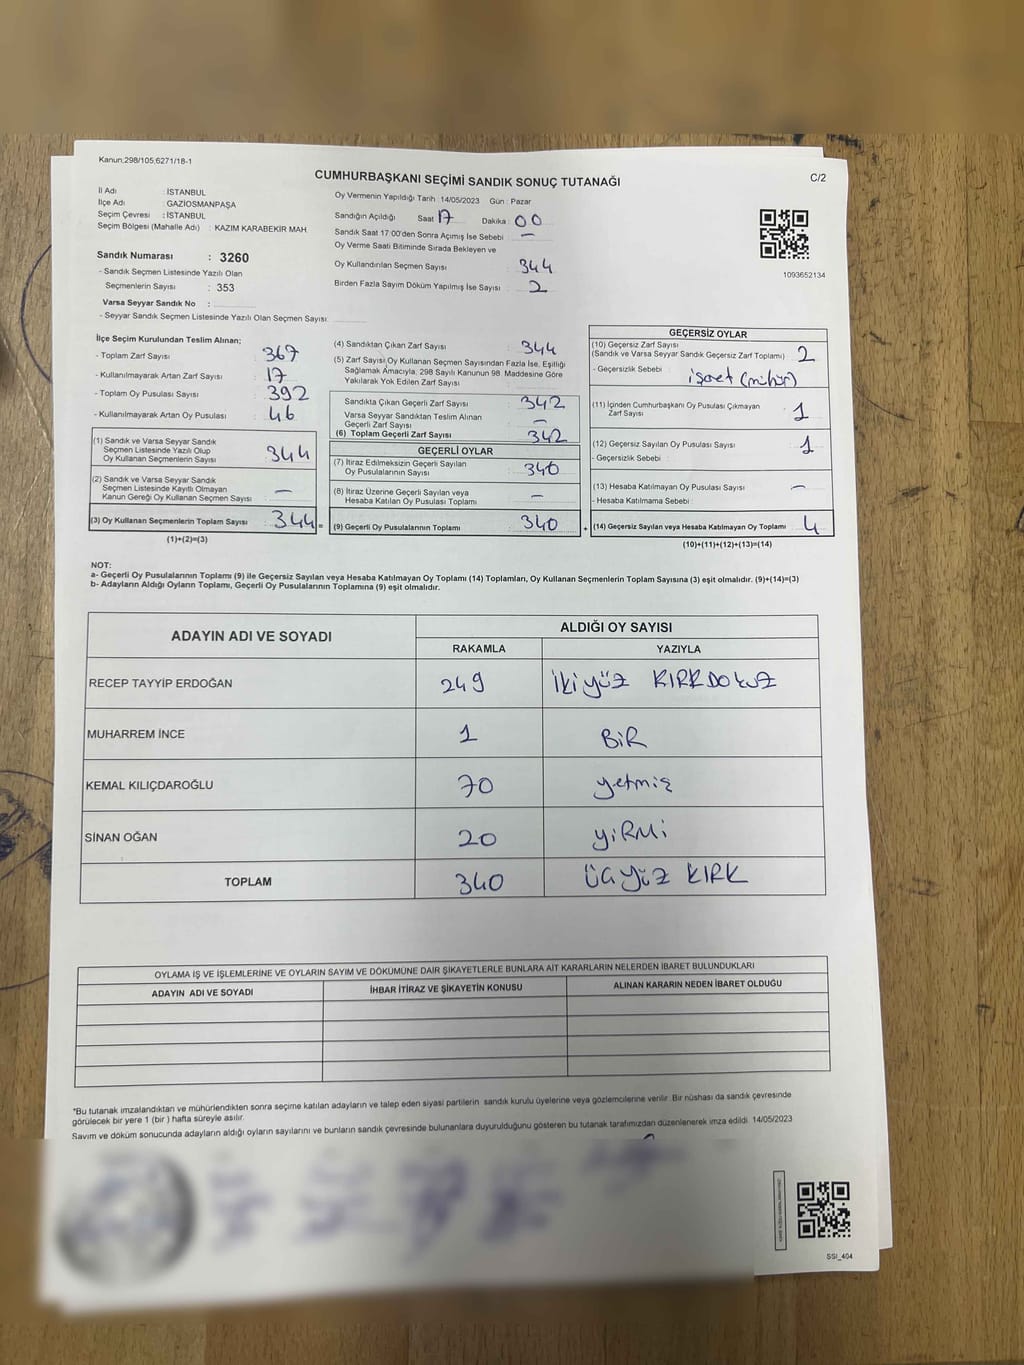 Kanun,298/105,6271/18-1
CUMHURBAŞKANI SEÇİMİ SANDIK SONUÇ TUTANAĞI
C/2
İl Adı : İSTANBUL
İlçe Adı : GAZİOSMANPAŞA
Seçim Çevresi : İSTANBUL
Seçim Bölgesi (Mahalle Adı) : KAZIM KARABEKİR MAH.
Sandık Numarası : 3260
- Sandık Seçmen Listesinde Yazılı Olan
Seçmenlerin Sayısı : 353
Varsa Seyyar Sandık No :
- Seyyar Sandık Seçmen Listesinde Yazılı Olan Seçmen Sayısı:
Oy Vermenin Yapıldığı Tarih : 14/05/2023 Gün : Pazar
Sandığın Açıldığı Saat : 17 Dakika : 00
Sandık Saat 17:00'den Sonra Açımış İse Sebebi : -
Oy Verme Saati Bitiminde Sırada Bekleyen ve
Oy Kullandırılan Seçmen Sayısı : 344
Birden Fazla Sayım Döküm Yapılmış İse Sayısı : 2
1093652134
İlçe Seçim Kurulundan Teslim Alınan;
- Toplam Zarf Sayısı : 367
- Kullanılmayarak Artan Zarf Sayısı : 17
- Toplam Oy Pusulası Sayısı : 392
- Kullanılmayarak Artan Oy Pusulası : 46
(1) Sandık ve Varsa Seyyar Sandık
Seçmen Listesinde Yazılı Olup
Oy Kullanan Seçmenlerin Sayısı : 344
(2) Sandık ve Varsa Seyyar Sandık
Seçmen Listesinde Kayıtlı Olmayan
Kanun Gereği Oy Kullanan Seçmen Sayısı : -
(3) Oy Kullanan Seçmenlerin Toplam Sayısı : 344 =
(1)+(2)=(3)
(4) Sandıktan Çıkan Zarf Sayısı : 344
(5) Zarf Sayısı,Oy Kullanan Seçmen Sayısından Fazla İse, Eşitliği
Sağlamak Amacıyla, 298 Sayılı Kanunun 98. Maddesine Göre
Yakılarak Yok Edilen Zarf Sayısı :
Sandıkta Çıkan Geçerli Zarf Sayısı : 342
Varsa Seyyar Sandıktan Teslim Alınan
Geçerli Zarf Sayısı : -
(6) Toplam Geçerli Zarf Sayısı : 342
GEÇERLİ OYLAR
(7) İtiraz Edilmeksizin Geçerli Sayılan
Oy Pusulalarının Sayısı : 340
(8) İtiraz Üzerine Geçerli Sayılan veya
Hesaba Katılan Oy Pusulası Toplamı : -
(9) Geçerli Oy Pusulalarının Toplamı : 340 +
GEÇERSİZ OYLAR
(10) Geçersiz Zarf Sayısı
(Sandık ve Varsa Seyyar Sandık Geçersiz Zarf Toplamı) : 2
- Geçersizlik Sebebi : işaret (mühür)
(11) İçinden Cumhurbaşkanı Oy Pusulası Çıkmayan
Zarf Sayısı : 1
(12) Geçersiz Sayılan Oy Pusulası Sayısı : 1
- Geçersizlik Sebebi :
(13) Hesaba Katılmayan Oy Pusulası Sayısı : -
- Hesaba Katılmama Sebebi :
(14) Geçersiz Sayılan veya Hesaba Katılmayan Oy Toplamı : 4
(10)+(11)+(12)+(13)=(14)
NOT:
a- Geçerli Oy Pusulalarının Toplamı (9) ile Geçersiz Sayılan veya Hesaba Katılmayan Oy Toplamı (14) Toplamları, Oy Kullanan Seçmenlerin Toplam Sayısına (3) eşit olmalıdır. (9)+(14)=(3)
b- Adayların Aldığı Oyların Toplamı, Geçerli Oy Pusulalarının Toplamına (9) eşit olmalıdır.
ADAYIN ADI VE SOYADI
ALDIĞI OY SAYISI
RAKAMLA YAZIYLA
RECEP TAYYİP ERDOĞAN 249 İkiyüz KIRKDOKUZ
MUHARREM İNCE 1 BİR
KEMAL KILIÇDAROĞLU 70 yetmiş
SİNAN OĞAN 20 YİRMİ
TOPLAM 340 ÜÇYÜZ KIRK
OYLAMA İŞ VE İŞLEMLERİNE VE OYLARIN SAYIM VE DÖKÜMÜNE DAİR ŞİKAYETLERLE BUNLARA AİT KARARLARIN NELERDEN İBARET BULUNDUKLARI
ADAYIN ADI VE SOYADI İHBAR İTİRAZ VE ŞİKAYETİN KONUSU ALINAN KARARIN NEDEN İBARET OLDUĞU
*Bu tutanak imzalandıktan ve mühürlendikten sonra seçime katılan adayların ve talep eden siyasi partilerin sandık kurulu üyelerine veya gözlemcilerine verilir. Bir nüshası da sandık çevresinde
görülecek bir yere 1 (bir ) hafta süreyle asılır.
Sayım ve döküm sonucunda adayların aldığı oyların sayılarını ve bunların sandık çevresinde bulunanlara duyurulduğunu gösteren bu tutanak tarafımızdan düzenlenerek imza edildi. 14/05/2023
SSI_404